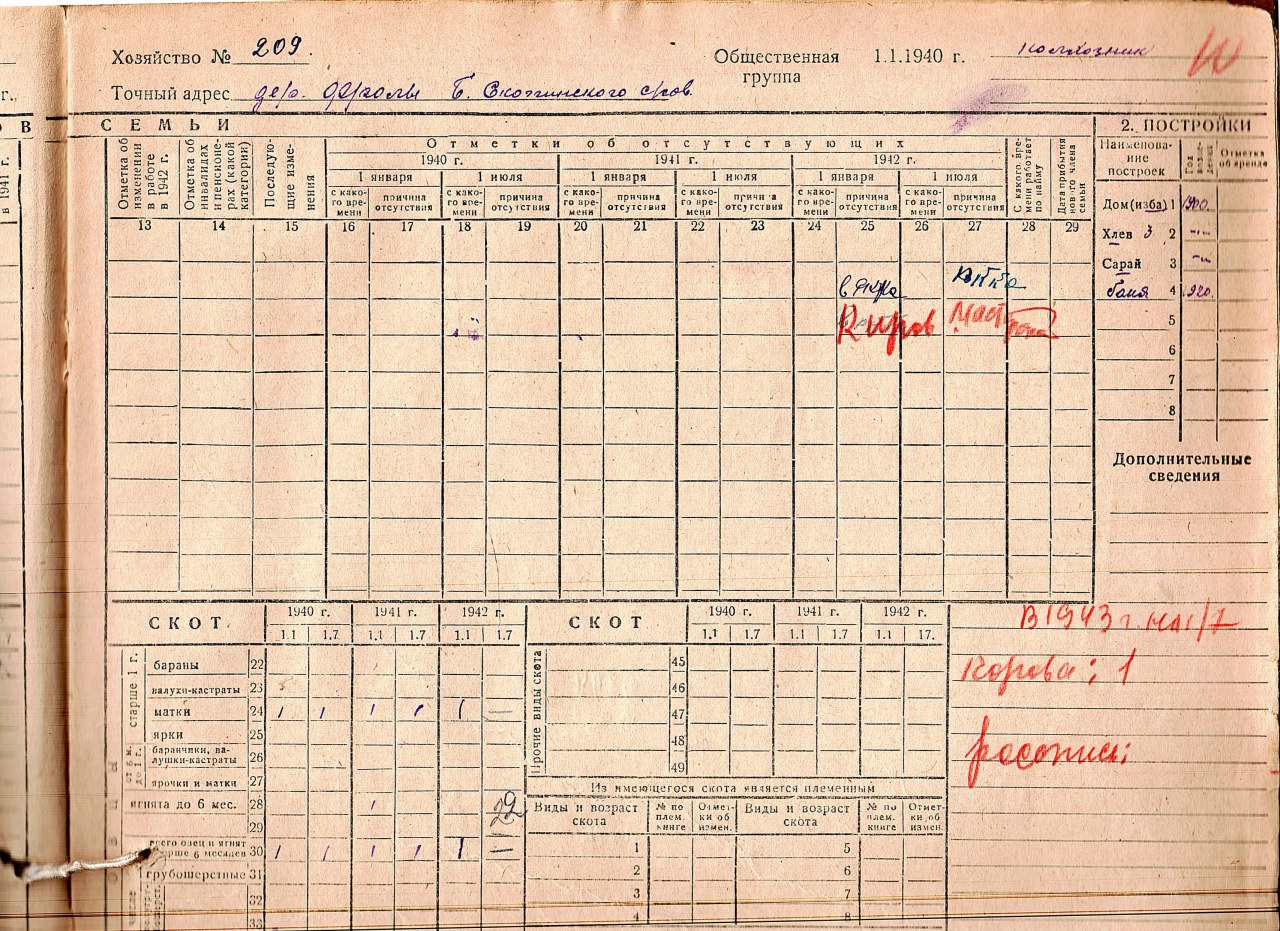 Хозяйство № 209.
Общественная группа 1.1.1940 г. колхозник
Точный адрес дер. Фролы Б.
г.,
О В
С Е М Ь И
2. ПОСТРОЙКИ
в 1941 г.
Отметка об изменении в работе в 1942 г.
Отметка об инвалидах и пенсионерах (какой категории)
Последующие изменения
Отметки об отсутствующих
1940 г. 1941 г. 1942 г.
1 января 1 июля 1 января 1 июля 1 января 1 июля
с какого времени причина отсутствия с какого времени причина отсутствия с какого времени причина отсутствия с какого времени причина отсутствия с какого времени причина отсутствия с какого времени причина отсутствия
С какого времени работает по найму
Дата прибытия нового члена семьи
Наименование построек
Отметка об аренде
13 14 15 16 17 18 19 20 21 22 23 24 25 26 27 28 29
Дом (изба) 1 1900.
Хлев 3 2 -"-
Сарай 3 -"-
баня 4 920.
5
6
7
8
РККА
Киров
Дополнительные сведения
СКОТ
1940 г. 1941 г. 1942 г.
1.1 1.7 1.1 1.7 1.1 1.7
старше 1 г.
бараны 22
валухи-кастраты 23
матки 24 1 1 1 1 1 —
ярки 25
от 6 м. до 1 г.
баранчики, валушки-кастраты 26
ярочки и матки 27
ягнята до 6 мес. 28 1
29
всего овец и ягнят старше 6 месяцев 30 1 1 1 1 1 —
грубошерстные 31
32
33
СКОТ
1940 г. 1941 г. 1942 г.
1.1 1.7 1.1 1.7 1.1 17.
Прочие виды скота
45
46
47
48
49
Из имеющегося скота является племенным
Виды и возраст скота № по плем. книге Отметки об измен. Виды и возраст скота № по плем. книге Отметки об измен.
1 5
2 6
3 7
4 8
В 1943 г. на 1/7
Корова: 1
роспись: